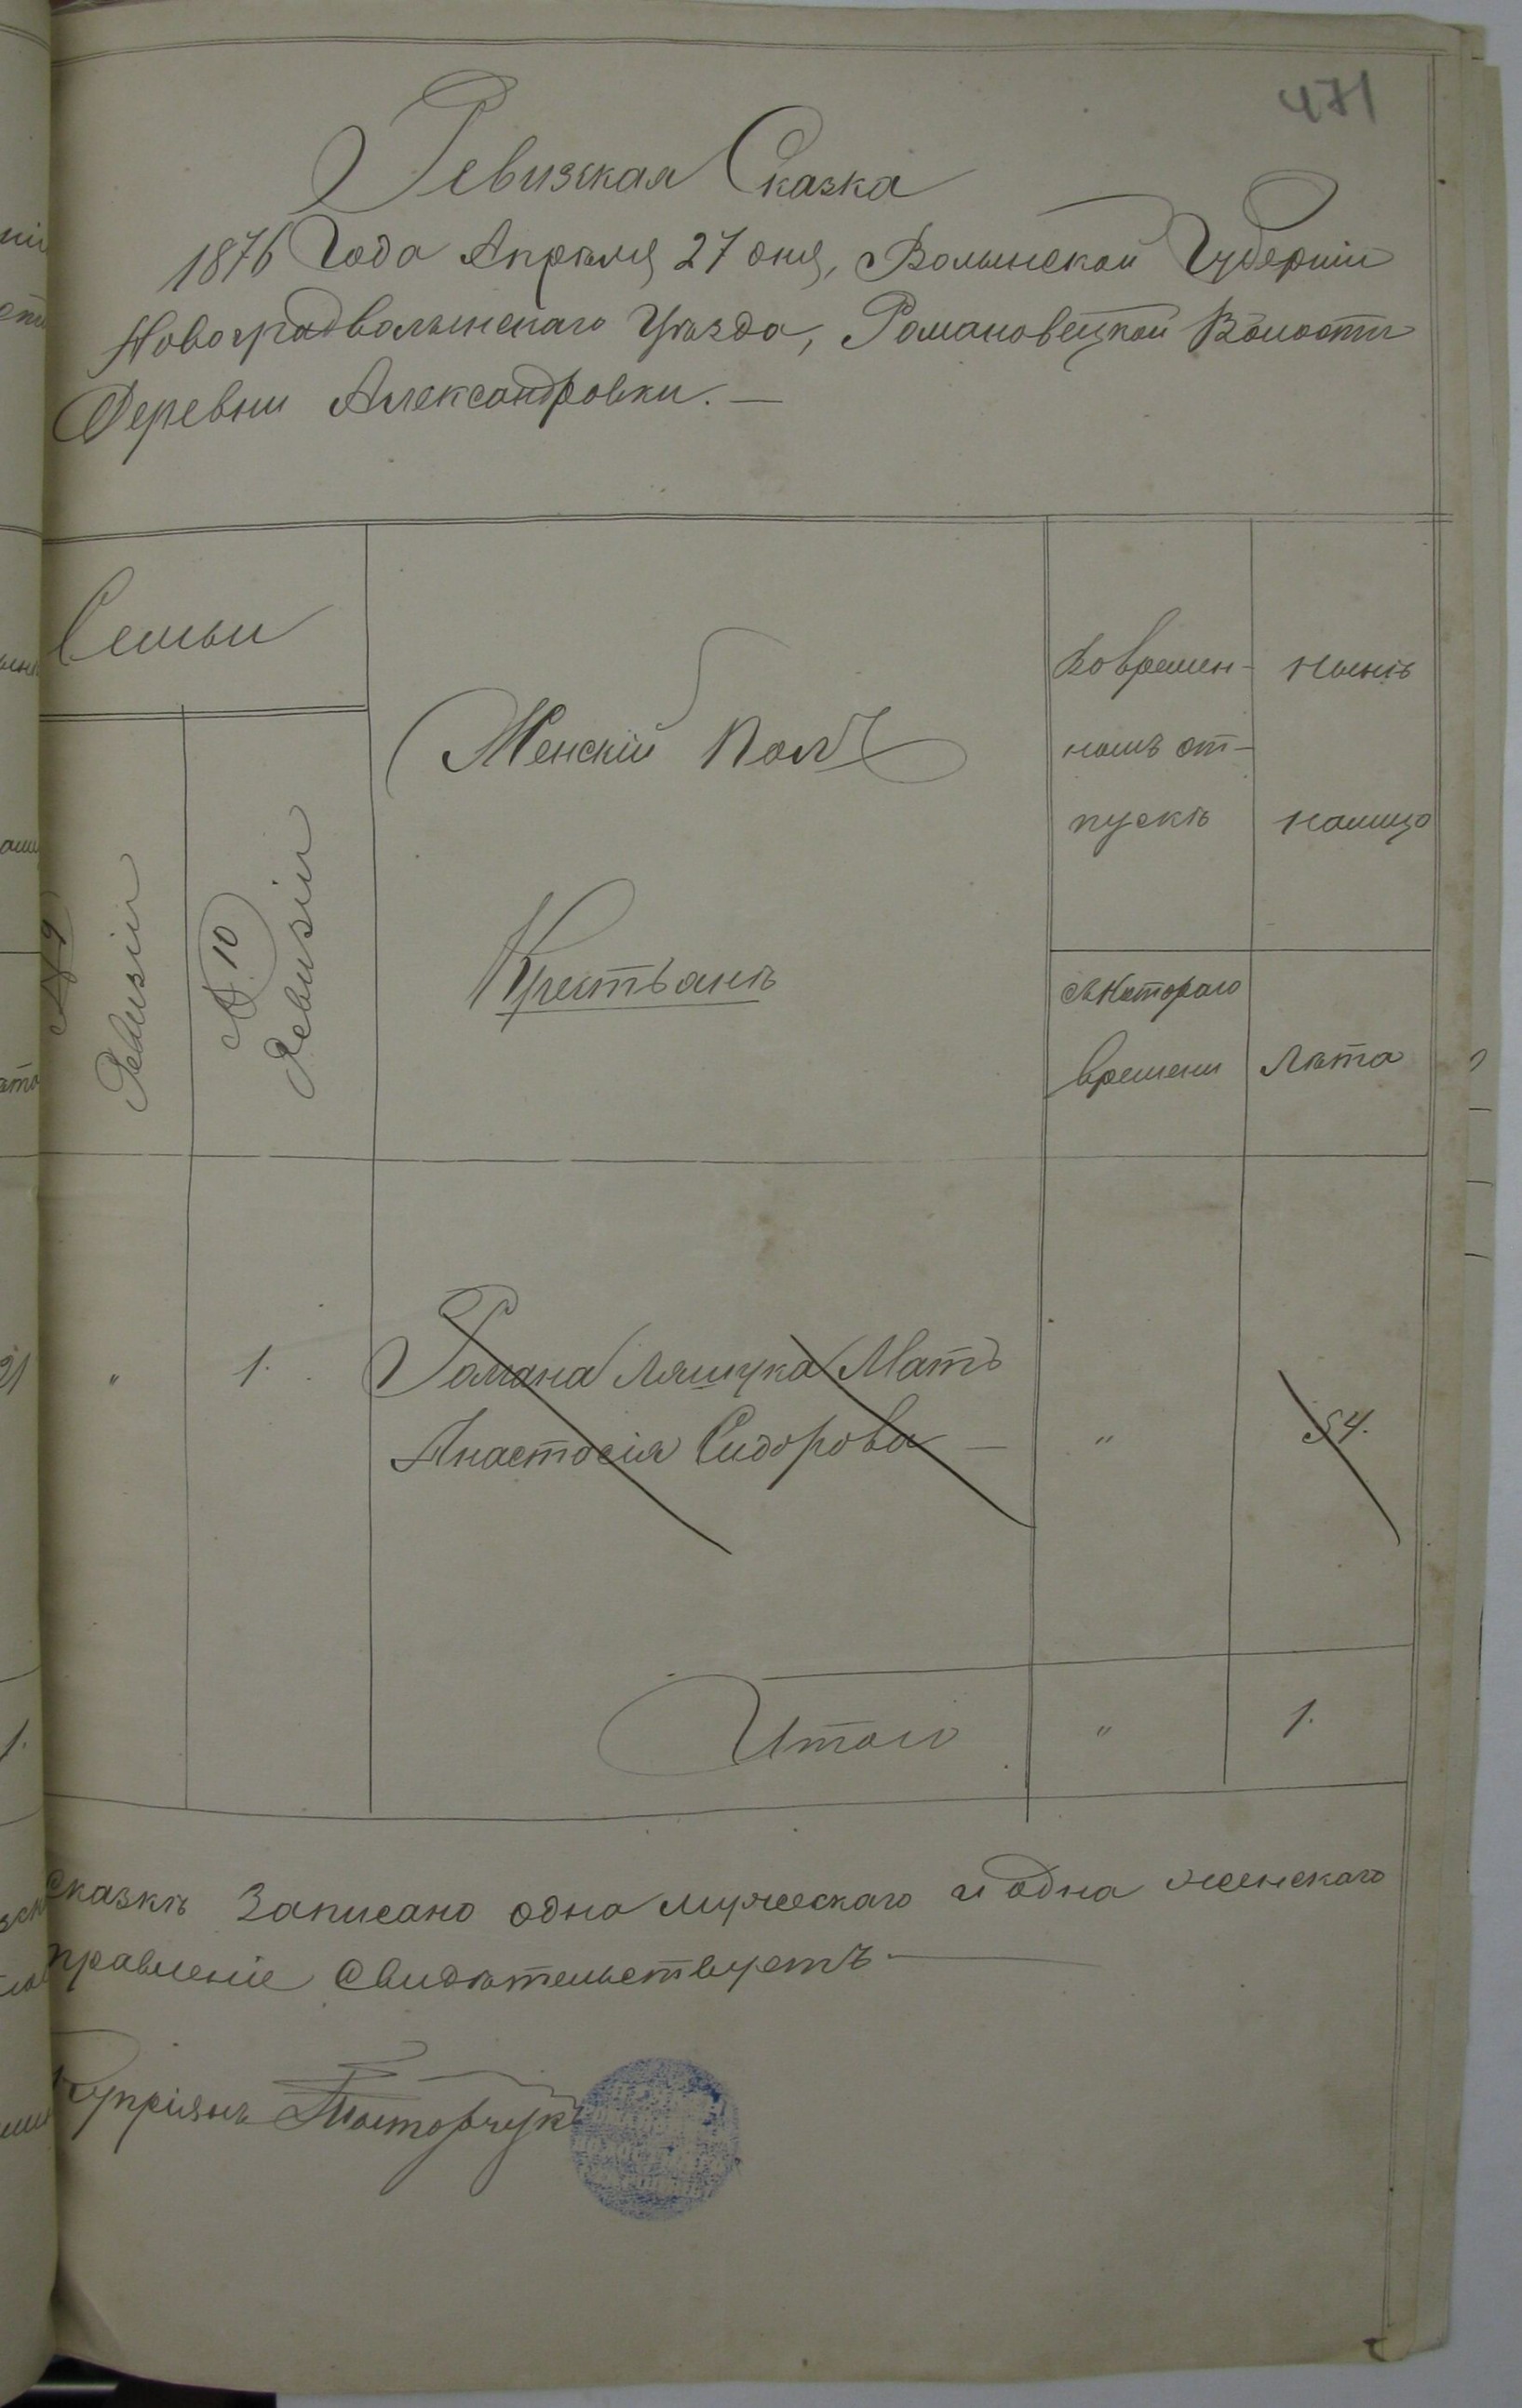 471
Ревизская Сказка
1876 Года Апрѣля 27 дня, Волынской Губерніи
Новоградволынскаго Уѣзда, Романовецкой Волости
Деревни Александровки. —
Семьи
№ 9
Ревизіи
№ 10
Ревизіи
Женскій Полъ
Крестьянѣ
Во времен-
номъ от-
пускѣ
Нынѣ
налицо
съ Котораго
времени
Лѣта
" 1. Романа Ляшука Мать
Анастасія Сидорова — " 54.
Итого " 1.
сказкѣ Записано одна мужескаго и одна женскаго
правленіе Свидѣтельствуетъ —
Купріянъ